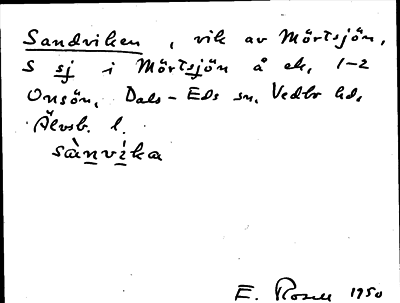 Sandviken, vik av Mörtsjön,
S sj i Mörtsjön å ek. 1-2
Onsön, Dals-Eds sn. Vedbo hd.
Älvsb. l.
sànvíka
E. Rosell 1950